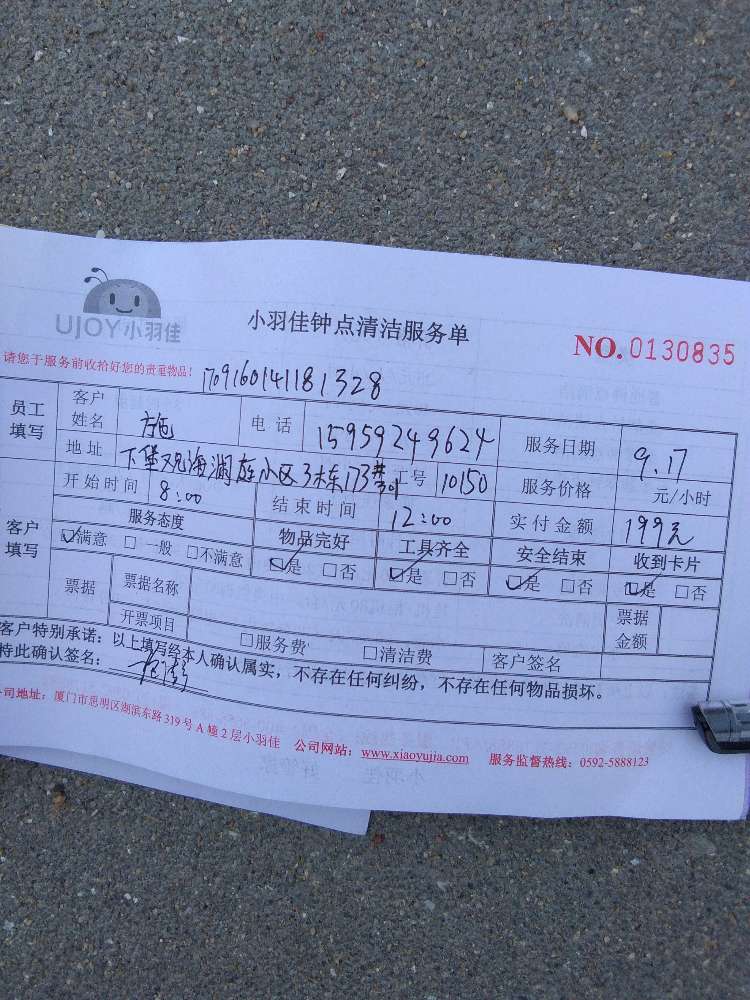 UJOY小羽佳
小羽佳钟点清洁服务单
NO. 0130835
请您于服务前收拾好您的贵重物品! 170916014118 1328
员工填写 客户姓名 施 电话 15959249624 服务日期 9.17
地址 下堡观海澜庭小区3栋173 工号 10150 服务价格 元/小时
开始时间 8:00 结束时间 12:00 实付金额 199元
客户填写 服务态度 物品完好 工具齐全 安全结束 收到卡片
☑满意 □一般 □不满意 ☑是 □否 ☑是 □否 ☑是 □否 ☑是 □否
票据 票据名称 票据金额
开票项目 □服务费 □清洁费 客户签名
客户特别承诺:以上填写经本人确认属实,不存在任何纠纷,不存在任何物品损坏。
特此确认签名:
司地址:厦门市思明区湖滨东路319号A幢2层小羽佳 公司网站:www.xiaoyujia.com 服务监督热线:0592-5888123